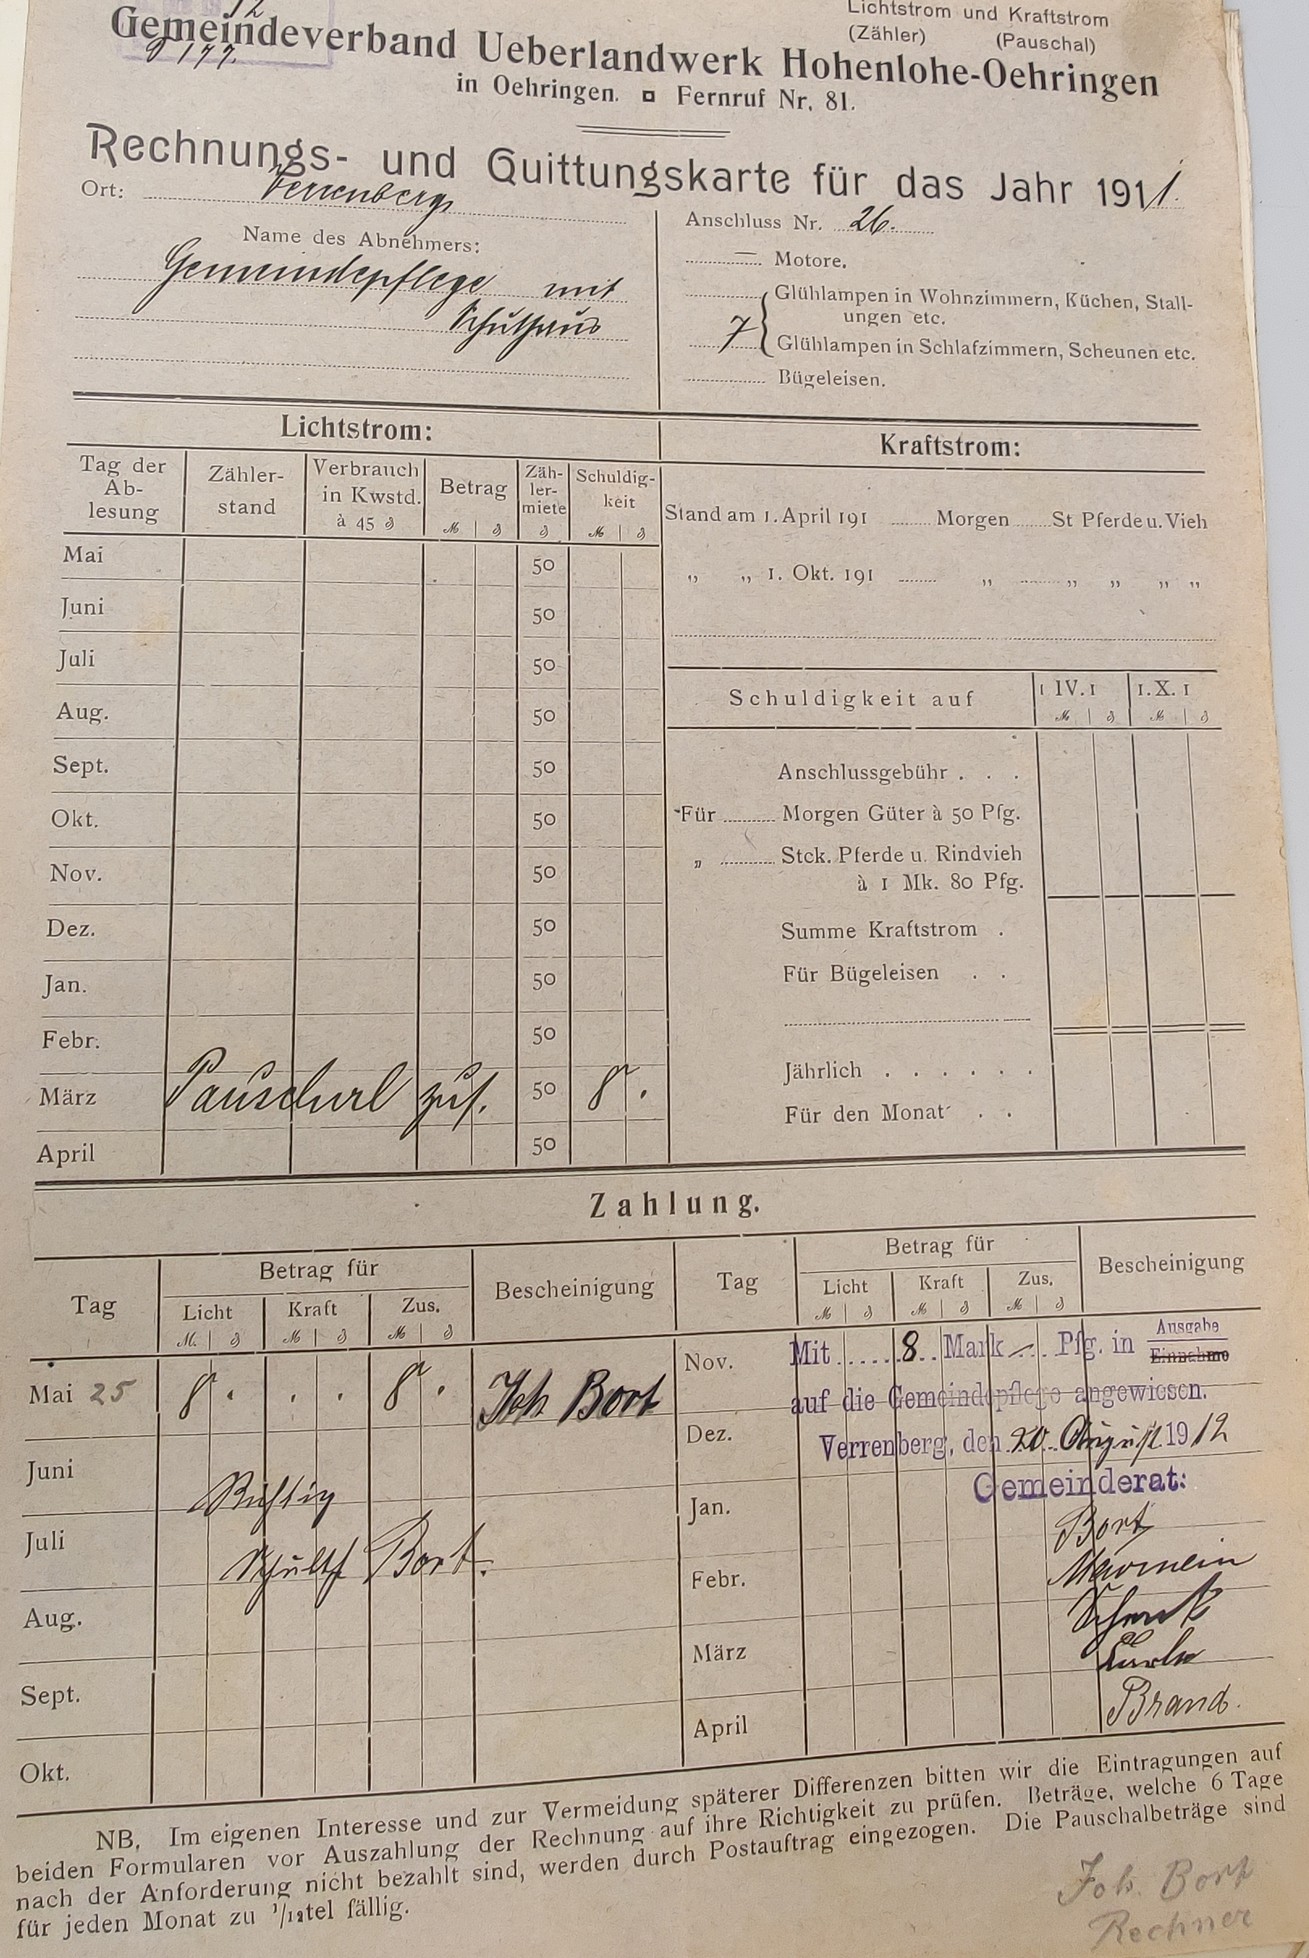 12
9 177.
Lichtstrom und Kraftstrom
(Zähler) (Pauschal)
Gemeindeverband Ueberlandwerk Hohenlohe-Oehringen
in Oehringen. Fernruf Nr. 81.
Rechnungs- und Quittungskarte für das Jahr 1911.
Ort: Verrenberg
Name des Abnehmers:
Gemeindepflege mit
Schulhaus
Anschluss Nr. 26.
— Motore.
Glühlampen in Wohnzimmern, Küchen, Stall-
ungen etc.
7 { Glühlampen in Schlafzimmern, Scheunen etc.
Bügeleisen.
Lichtstrom:
Tag der Ab-lesung Zähler-stand Verbrauch in Kwstd. à 45 ₰ Betrag Zäh-ler-miete Schuldig-keit
ℳ ₰ ₰ ℳ ₰
Mai 50
Juni 50
Juli 50
Aug. 50
Sept. 50
Okt. 50
Nov. 50
Dez. 50
Jan. 50
Febr. 50
März Pauschal zus. 50 8 .
April 50
Kraftstrom:
Stand am 1. April 191 Morgen St Pferde u. Vieh
„ „ 1. Okt. 191 „ „ „ „ „
Schuldigkeit auf 1 IV. 1 1. X. 1
ℳ ₰ ℳ ₰
Anschlussgebühr . . .
Für Morgen Güter à 50 Pfg.
„ Stck. Pferde u. Rindvieh
à 1 Mk. 80 Pfg.
Summe Kraftstrom .
Für Bügeleisen . .
Jährlich . . . . . .
Für den Monat . .
Zahlung.
Tag Betrag für Bescheinigung
Licht Kraft Zus.
ℳ ₰ ℳ ₰ ℳ ₰
Mai 25 8 . . . 8 . Joh Bort
Juni
Richtig
Juli
Schulth Bort.
Aug.
Sept.
Okt.
Tag Betrag für Bescheinigung
Licht Kraft Zus.
ℳ ₰ ℳ ₰ ℳ ₰
Nov.
Dez.
Jan.
Febr.
März
April
Mit 8 Mark — Pfg. in Ausgabe
Einnahme
auf die Gemeindepflege angewiesen.
Verrenberg, den 20. August 1912
Gemeinderat:
Bort
Schenk
Brand.
NB. Im eigenen Interesse und zur Vermeidung späterer Differenzen bitten wir die Eintragungen auf
beiden Formularen vor Auszahlung der Rechnung auf ihre Richtigkeit zu prüfen. Beträge, welche 6 Tage
nach der Anforderung nicht bezahlt sind, werden durch Postauftrag eingezogen. Die Pauschalbeträge sind
für jeden Monat zu 1/12tel fällig.
Joh. Bort
Rechner